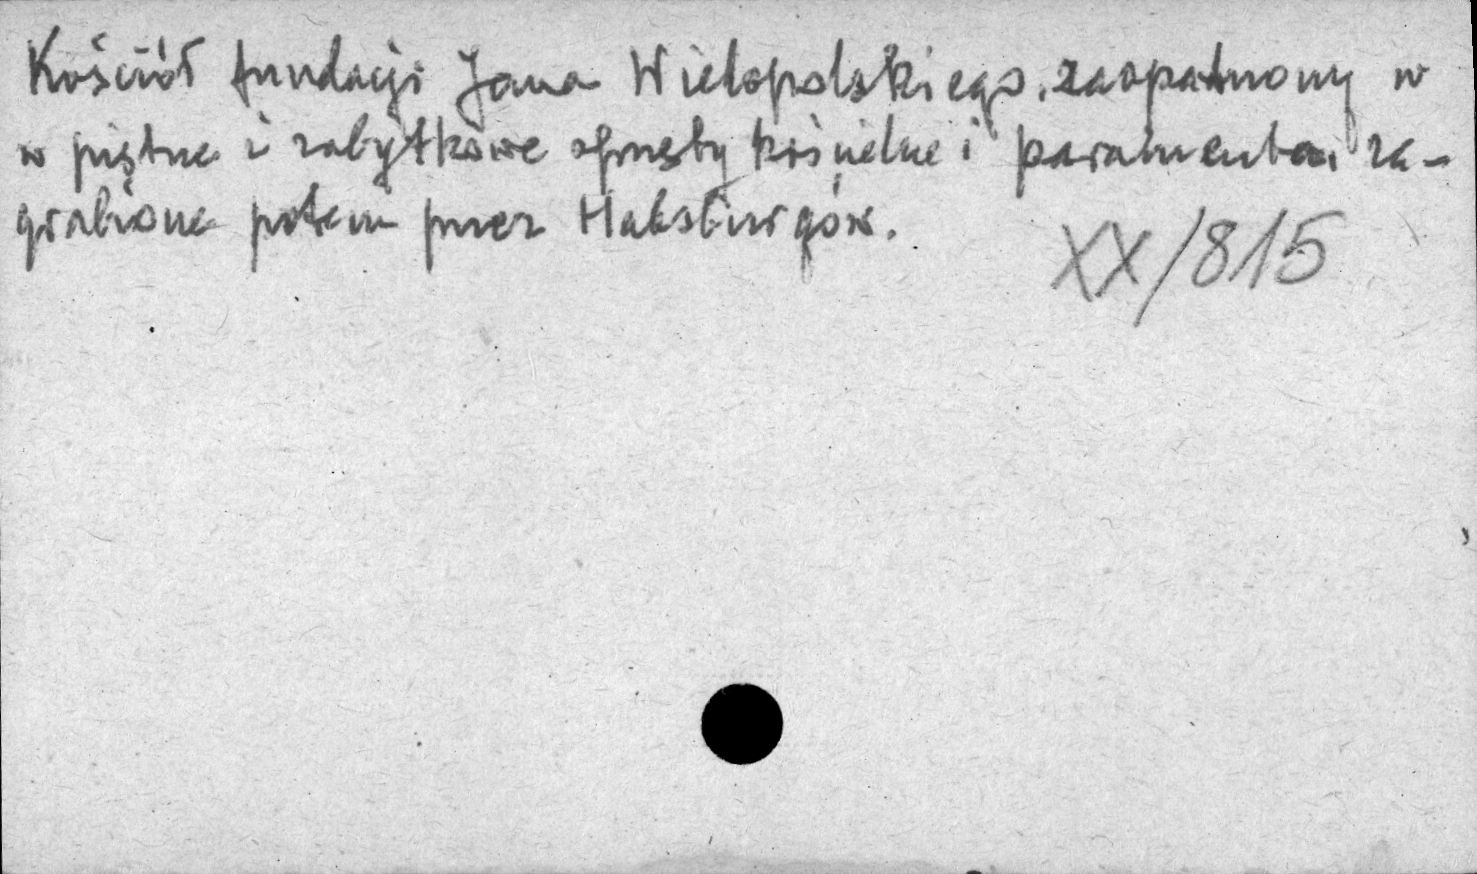 Kościół fundacji Jana Wielopolskiego, zaopatrzony w
w piękne i zabytkowe sprzęty kościelne i paramenta, za-
grabione potem przez Habsburgów.
XX/815